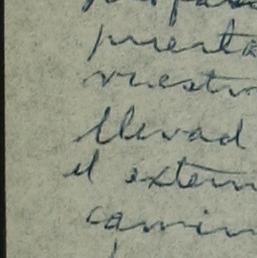 puerta
vuestr
llevad
el extern
camin